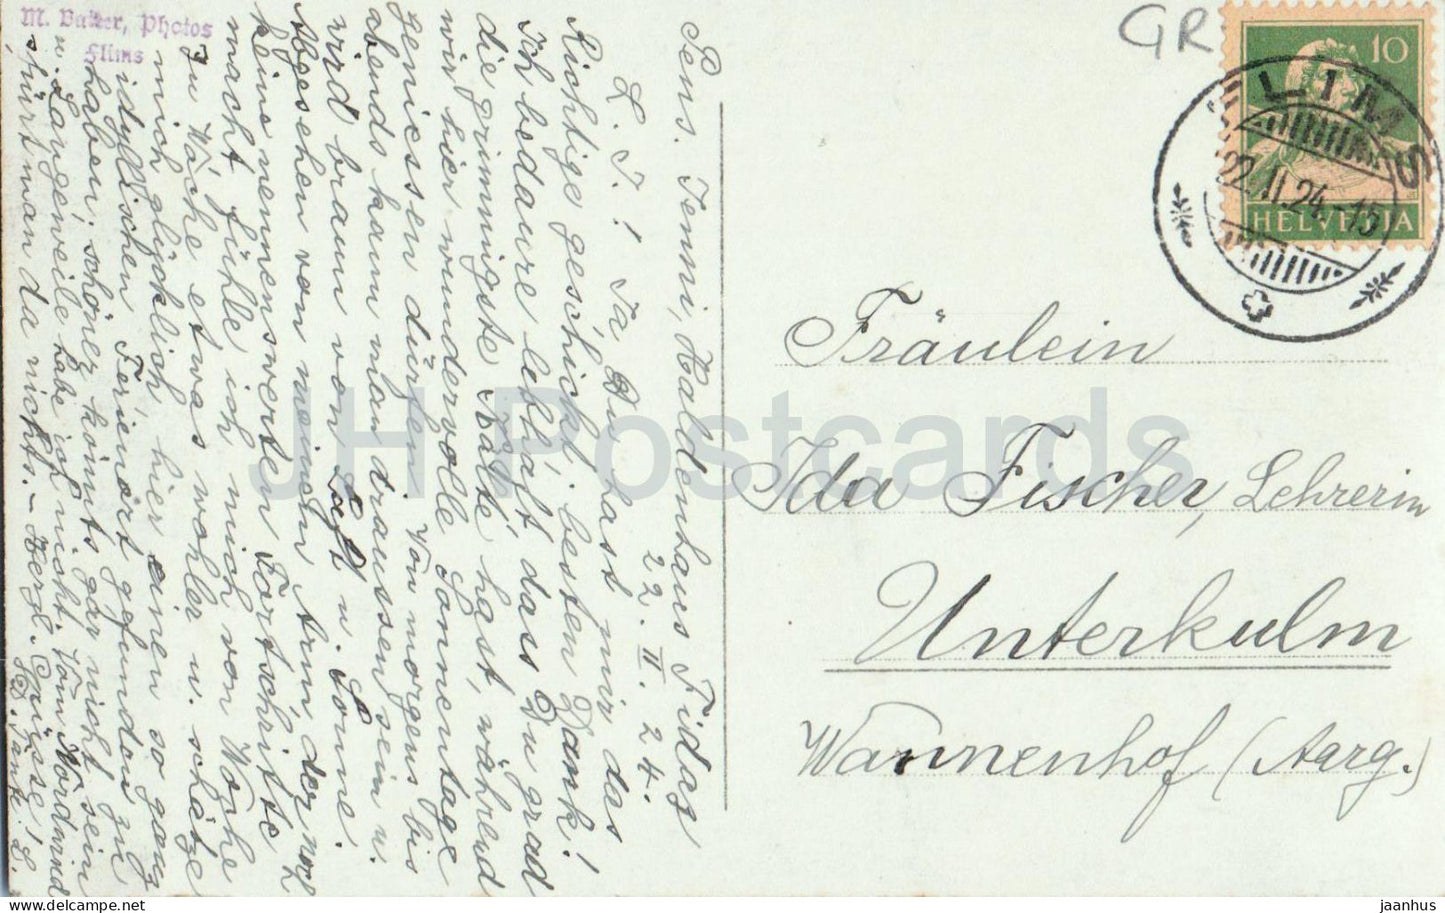 M. Bauer, Photos
Flims
Pens. Jenni, Waldenhaus Fidaz
22. II. 24.
L. I.! Ja Du hast mir das
Richtige geschickt, besten Dank!
Ich bedaure lebhaft das Du grad
die grimmigste Kälte hast, während
wir hier wundervolle Sonnentage
geniessen dürfen. Von morgens bis
abends kann man draussen sein u.
wird braun von Luft u. Sonne.
Abgesehen von meinem Arm, der noch
keine nennenswerten Fortschritte
macht, fühle ich mich von Woche
zu Woche etwas wohler u. schätze
mich glücklich hier einen so ganz
idyllischen Ferienort gefunden zu
haben, schöner könnt's gar nicht sein
u. Langeweile habe ich nicht. Vom Nordwind
spürt man da nichts. - Herzl. Grüsse! L.
GR
10
FLIMS
22.II.24.-15
HELVETIA
Fräulein
Ida Fischer, Lehrerin
Unterkulm
Wannenhof (Aarg.)
JH Postcards
delcampe.net
jaanhus